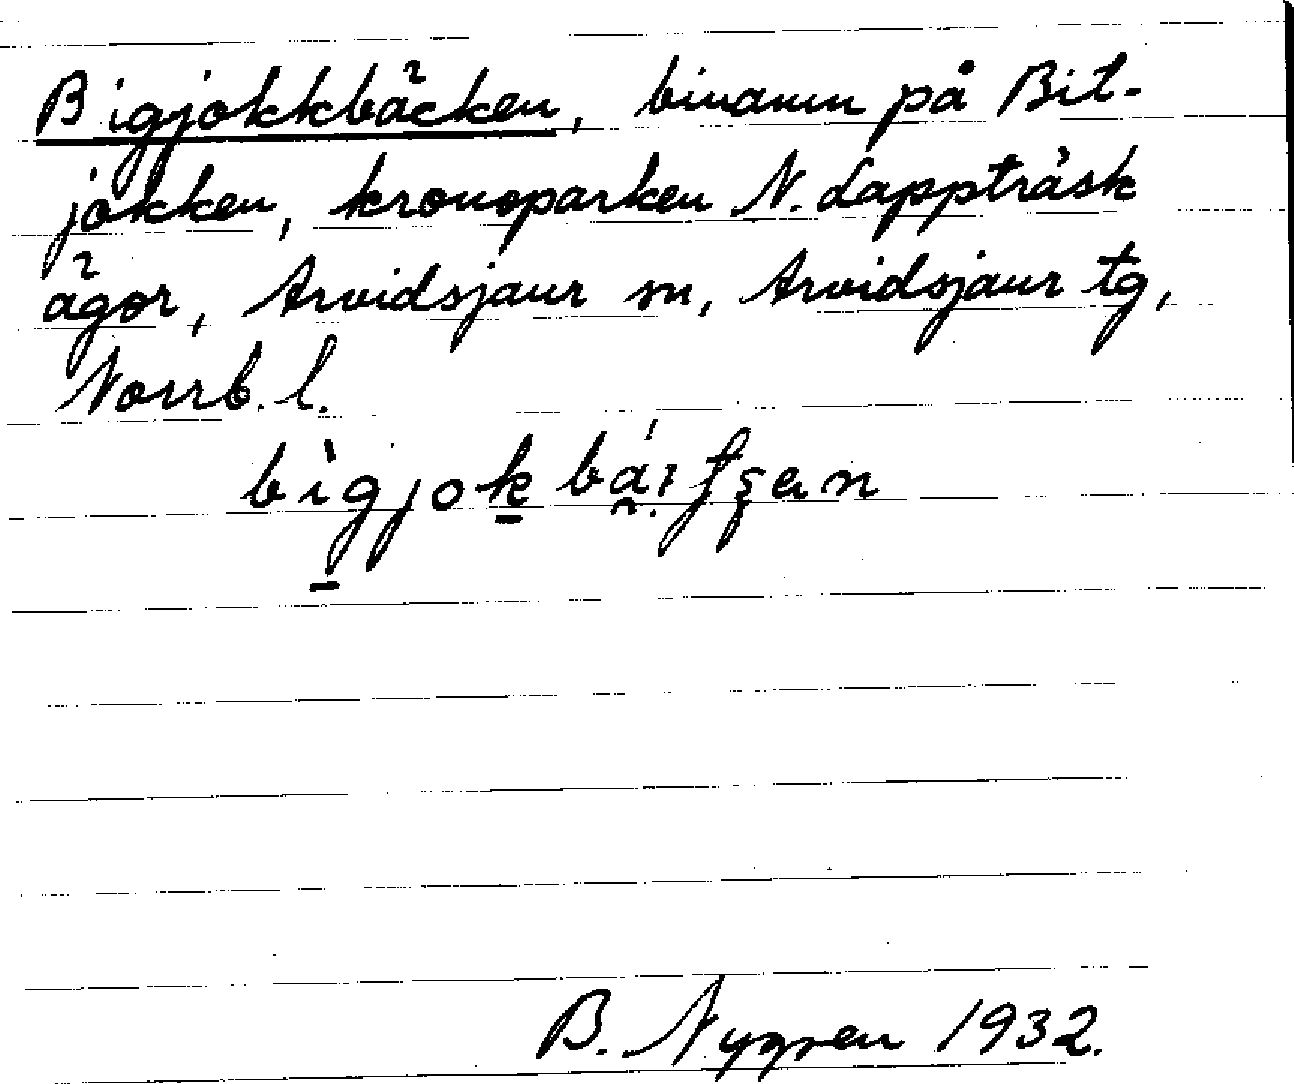 Bigjokkbäcken, binamn på Bit-
jokken, kronoparken N. Lappträsk
ägor, Arvidsjaur sn, Arvidsjaur tg,
Norrb. l.
bìgjok
B. Nygren 1932.